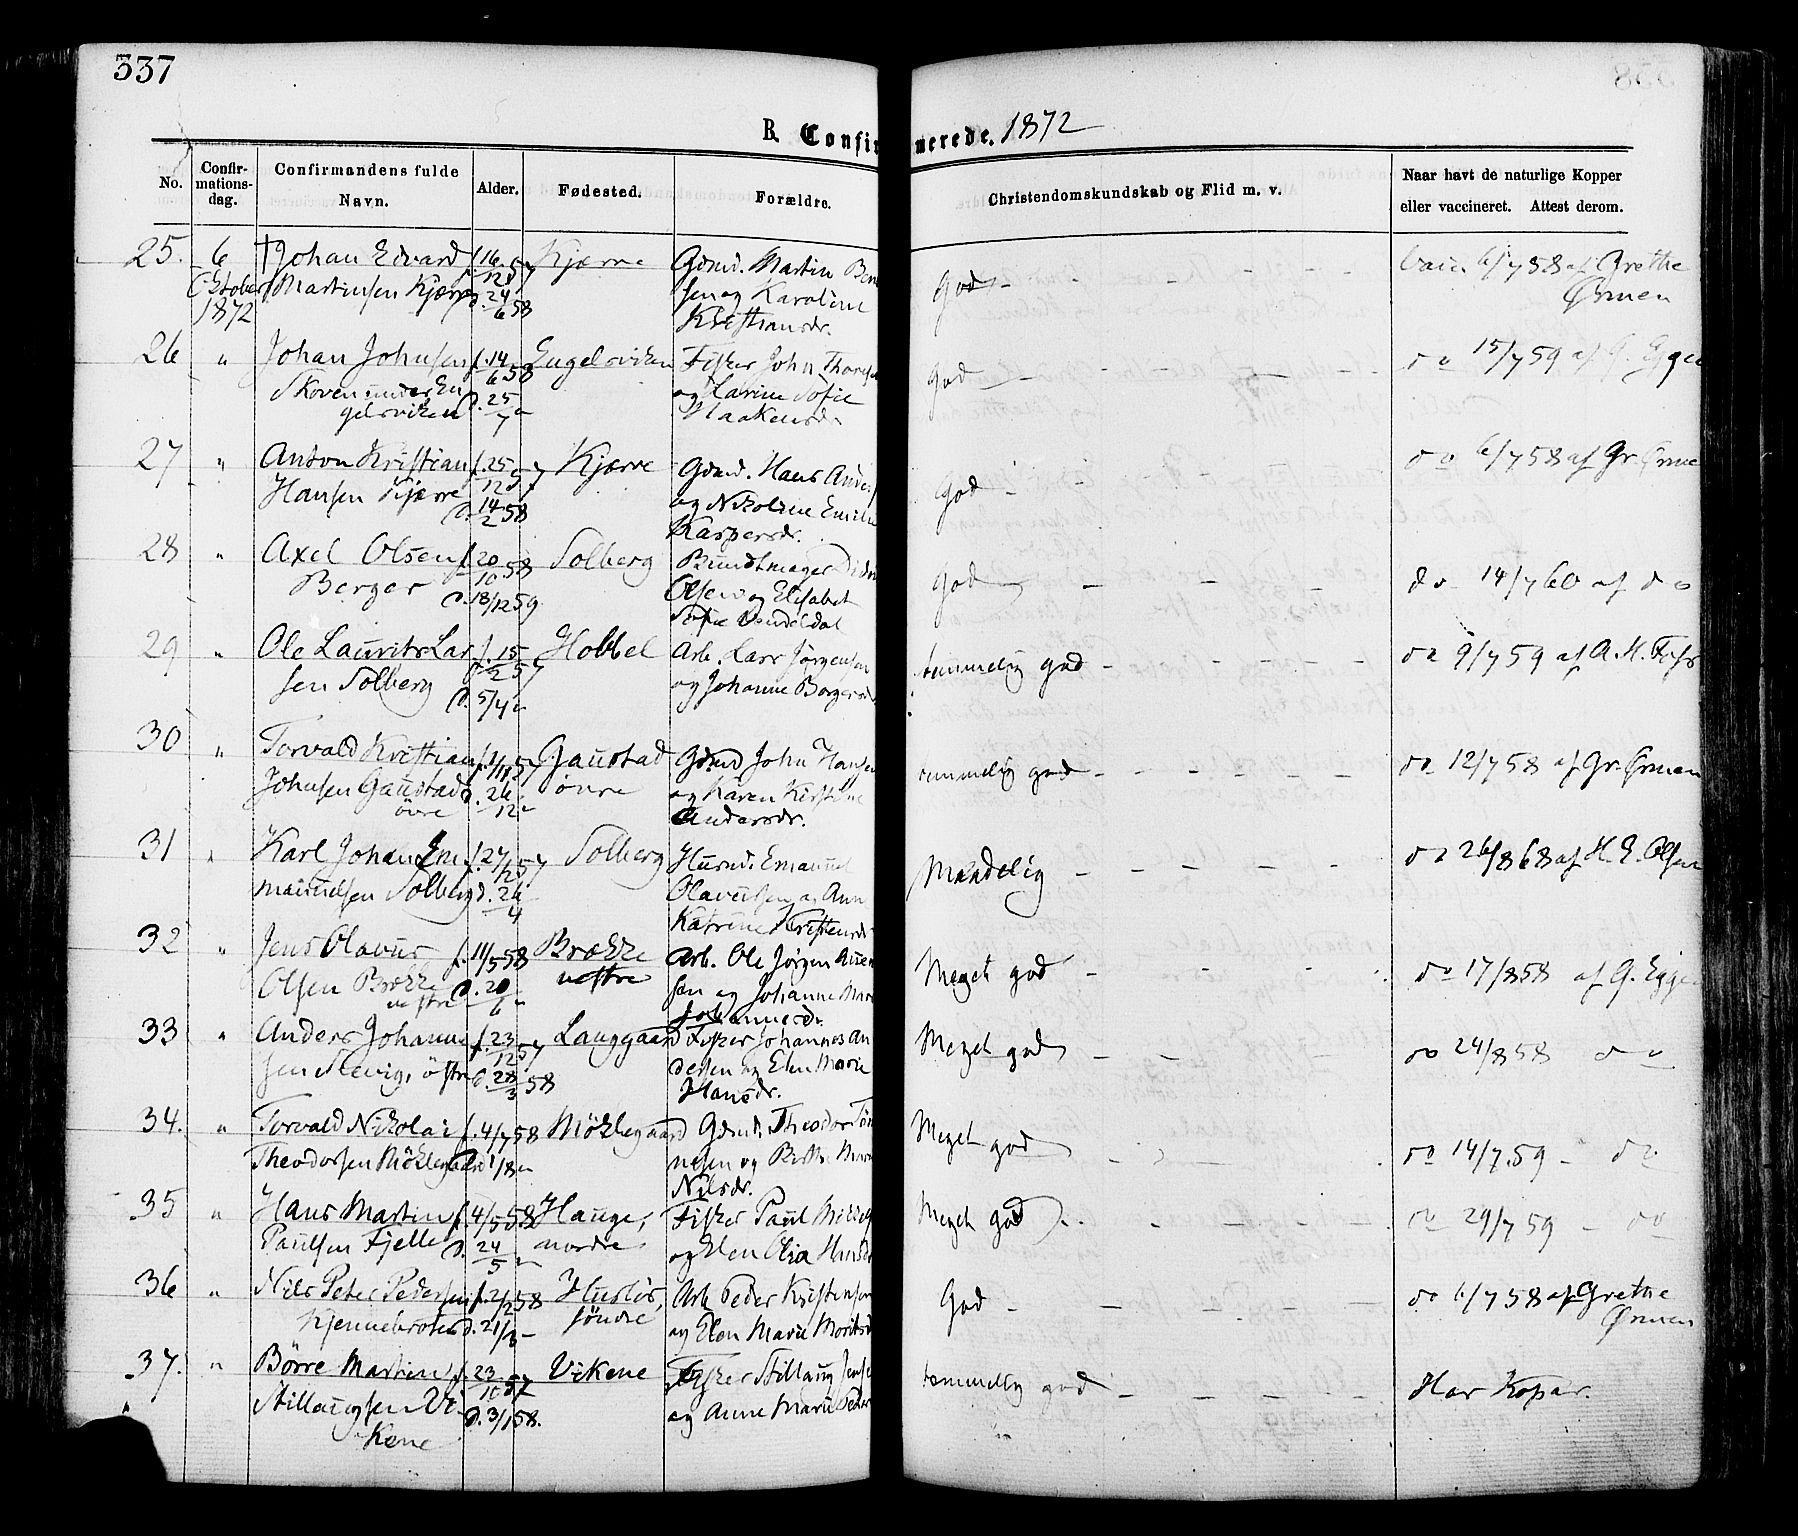 337
B. Confirmerede. 1872
No.
Confirmationsdag.
Confirmandens fulde Navn.
Alder.
Fødested.
Forældre.
Christendomskundskab og Flid m. v.
Naar havt de naturlige Kopper
eller vaccineret. Attest derom.
25. 6 †Johan Edvard f. 16/12 57 Kjærre Gdmd. Martin Ben
October Martinsen Kjærre d. 24/6 58 sen og Karoline God
1872 Kristiansdr.
vacc. 6/7 58 af Grethe
Ørmen
26 " Johan Johnsen f. 14/6 58 Engelsviken Fisker John Thores
Skoven under En d. 25/7 " og Lavine Sofie God
gelsviken Haakensdr
do 15/7 59 af G. Egge
27 " Anton Kristian f. 25/12 57 Kjærre Gdmd. Hans Anders
Hansen Kjærre d. 14/2 58 og Nikoline Emilie God
Kaspersdr.
do 6/7 58 af Gr. Ørme
28 " Axel Olsen f. 20/10 58 Solberg Bundtmager
Berger d. 18/12 59 Olsen og Elisabet God
Sofie
do 14/7 60 af do
29 " Ole Laurits Lar f. 15/2 57 Hobbel Arb. Lars Jørgensen
sen Solberg d. 5/4 " og Johanne Borgersd temmelig god
do 9/7 59 af A. M.
30 " Torvald Kristian f. 1/11 57 Gaustad Gdmd John Hansen
Johnsen Gaustad d. 26/12 " øvre og Karen Kirstine temmelig god
øvre Andersdr.
do 12/7 58 af Gr. Ørmen
31 " Karl Johan Em f. 27/12 57 Solberg Husmd. Emanuel
manuelsen Solberg d. 26/4 Olavesen og Ann Maadelig
Katrine Kristensdr
do 26/8 68 af H. E. Olsen
32 " Jens Olavus f. 11/5 58 Brække Arb. Ole Jørgen
Olsen Brække d. 20/6 " nestre sen og Johanne Mar Meget god
nestre Johannesdr.
do 17/8 58 af G. Egge
33 " Anders Johanne f. 23/12 57 Langgaard Fisker Johannes An
sen Slevig, østre d. 28/3 58 dersen og Elen Marie Meget god
Hansdr.
do 24/8 58 do
34. " Torvald Nikolai f. 4/7 58 Møklegaard Gdmd. Theodor Tøn
Theodorsen Møklegaard d. 1/8 " nesen og Berthe Mar Meget god
Nilsdr.
do 14/7 59 - do
35 " Hans Martin f. 4/5 58 Hauge, Fisker Paul
Paulsen Fjelle d. 24/5 " nordre og Elen Olia Meget god
do 29/7 59 - do
36 " Nils Peter Pedersen f. 2/2 58 Husløs, Arb. Peder Kristensen
Kjennebroten d. 21/3 - søndre og Elen Marie Moritsd God
do 6/7 58 af Grethe
Ørmen
37. " Børre Martin f. 23/10 57 Vikene Fisker Stillaug Jense
" Stillaugsen Vi- d. 3/1 58. og Anne Marie Peder temmelig god
kene
Har Kopar.